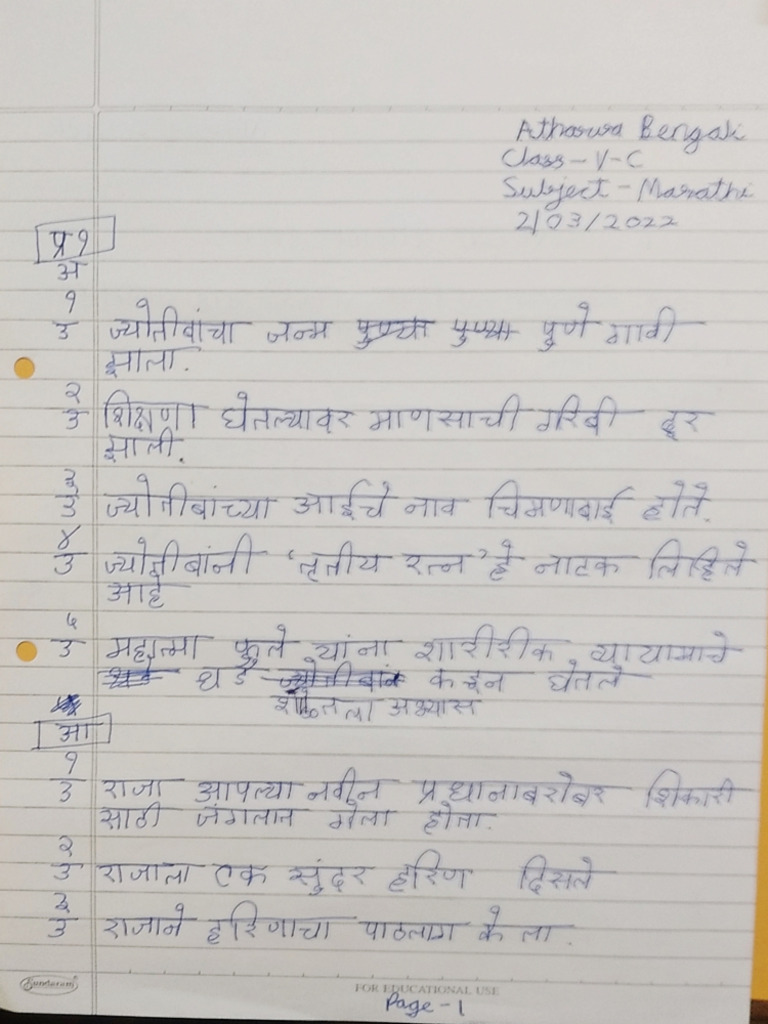 Atharva Bengali
Class - V - C
Subject - Marathi
2/03/2022
प्र १
अ
१
उ ज्योतीबांचा जन्म पुण्या पुणे गावी
झाला.
२
उ शिक्षणा घेतल्यावर माणसाची गरिबी दूर
झाली.
३
उ ज्योतीबांच्या आईचे नाव चिमणाबाई होते.
४
उ ज्योतीबांनी 'तृतीय रत्न' हे नाटक लिहिले
आहे
५
उ महात्मा फुले यांना शारीरीक व्यायामाचे
धडे कडून घेतले
अभ्यास
आ
१
उ राजा आपल्या नवीन प्रधानाबरोबर शिकारी
साठी जंगलात गेला होता.
२
उ राजाला एक सुंदर हरिण दिसले
३
उ राजाने हरिणाचा पाठलाग केला.
Sundaram
FOR EDUCATIONAL USE
Page - 1